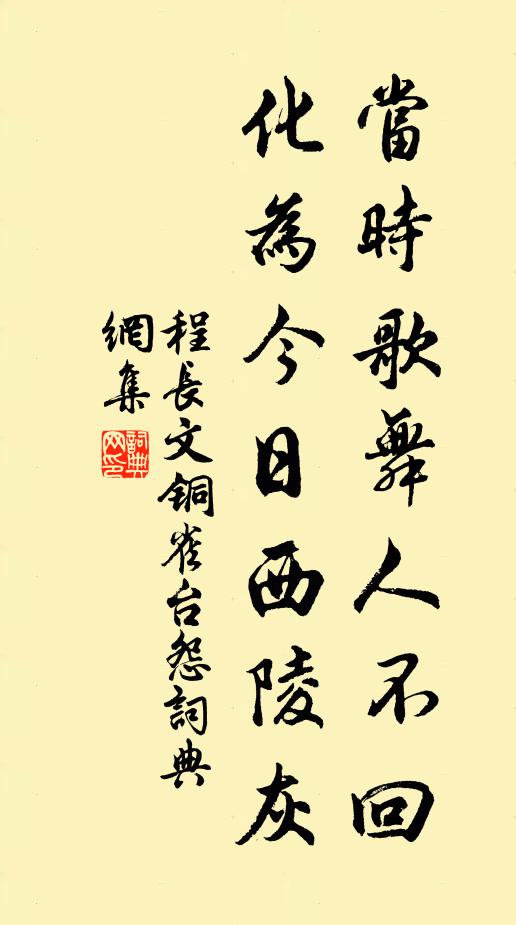 當時歌舞人不回
化為今日西陵灰
程長文銅雀台怨詞典
網集
詞典
网印